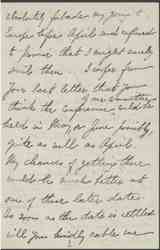 absolutely forbade my going to
Europe before April and refused
to promise that I might surely
sail then. I infer from
your last letter that you
of our Committee
think the Conference might be
held in May or June possibly
quite as well as April.
My chances of getting there
would be much better at
one of these later dates.
As soon as the date is settled
will you kindly cable me